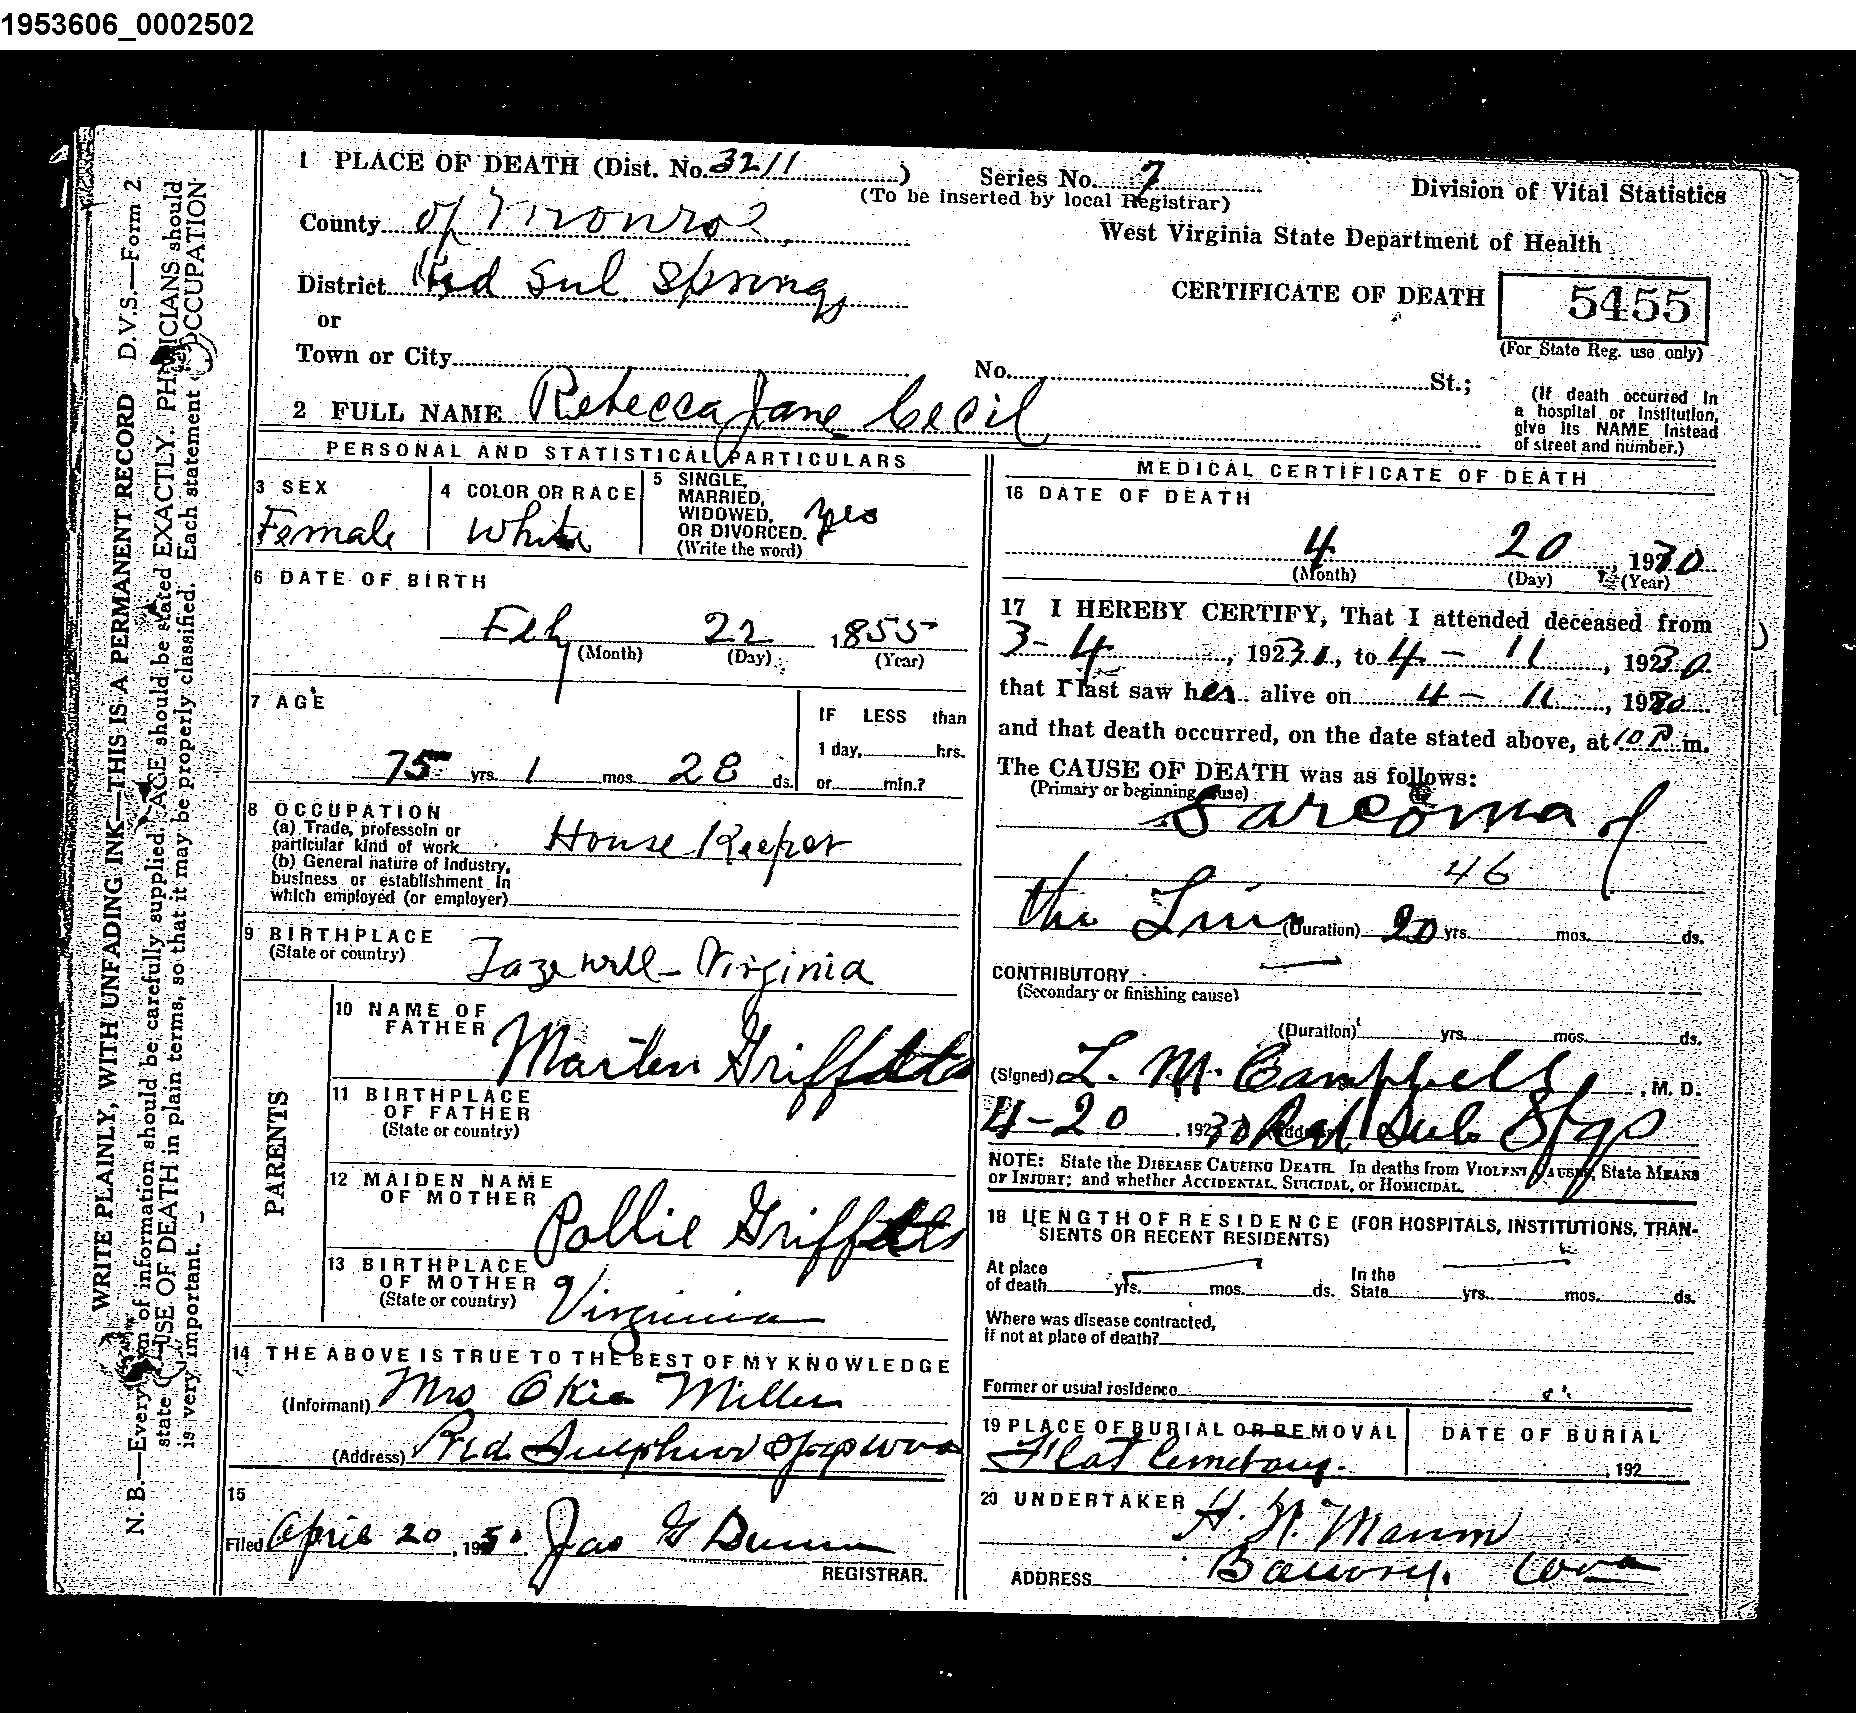 1953606_0002502
1 PLACE OF DEATH (Dist. No. 3211 ) Series No. 7
(To be inserted by local Registrar)
Division of Vital Statistics
County of Monroe
West Virginia State Department of Health
District Red Sul Springs
CERTIFICATE OF DEATH 5455
(For State Reg. use only)
or
Town or City No. St.;
(If death occurred in
a hospital or institution,
give its NAME instead
of street and number.)
2 FULL NAME Rebecca Jane Cecil
PERSONAL AND STATISTICAL PARTICULARS
3 SEX
Female
4 COLOR OR RACE
White
5 SINGLE,
MARRIED,
WIDOWED,
OR DIVORCED.
(Write the word)
yes
6 DATE OF BIRTH
Feb 22 1855
(Month) (Day) (Year)
7 AGE
75 yrs. 1 mos. 28 ds.
IF LESS than
1 day, hrs.
or min.?
8 OCCUPATION
(a) Trade, professoin or
particular kind of work House Keeper
(b) General nature of Industry,
business or establishment in
which employed (or employer)
9 BIRTHPLACE
(State or country) Tazewell - Virginia
PARENTS
10 NAME OF
FATHER Marten Griffitts
11 BIRTHPLACE
OF FATHER
(State or country)
12 MAIDEN NAME
OF MOTHER Pollie Griffitts
13 BIRTHPLACE
OF MOTHER
(State or country) Virginia
14 THE ABOVE IS TRUE TO THE BEST OF MY KNOWLEDGE
(Informant) Mrs Okie Miller
(Address) Red Sulphur Spgs Wva
15
Filed April 20, 1930. Jas G Dunn
REGISTRAR.
MEDICAL CERTIFICATE OF DEATH
16 DATE OF DEATH
4 20, 1930
(Month) (Day) (Year)
17 I HEREBY CERTIFY, That I attended deceased from
3-4, 1930, to 4-11, 1930
that I last saw her alive on 4-11, 1930
and that death occurred, on the date stated above, at 10 P m.
The CAUSE OF DEATH was as follows:
(Primary or beginning cause)
Sarcoma of
46
the (Duration) 20 yrs. mos. ds.
CONTRIBUTORY
(Secondary or finishing cause)
(Duration) yrs. mos. ds.
(Signed) L. M. Campbell, M. D.
4-20, 1930 (Address) Red Sul Spgs
NOTE: State the DISEASE CAUSING DEATH. In deaths from VIOLENT CAUSES, State MEANS
OF INJURY; and whether ACCIDENTAL, SUICIDAL, or HOMICIDAL.
18 LENGTH OF RESIDENCE (FOR HOSPITALS, INSTITUTIONS, TRAN-
SIENTS OR RECENT RESIDENTS)
At place
of death yrs. mos. ds.
In the
State yrs. mos. ds.
Where was disease contracted,
if not at place of death?
Former or usual residence
19 PLACE OF BURIAL OR REMOVAL
Flat Cemetary.
DATE OF BURIAL
, 192
20 UNDERTAKER H. W. Mann
ADDRESS Wva
N. B.—Every item of information should be carefully supplied. AGE should be stated EXACTLY. PHYSICIANS should
state CAUSE OF DEATH in plain terms, so that it may be properly classified. Each statement of OCCUPATION
is very important.
WRITE PLAINLY, WITH UNFADING INK—THIS IS A PERMANENT RECORD D.V.S.—Form 2